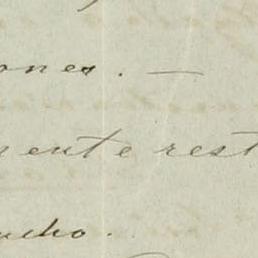 ones. —
mente rest
ucho.